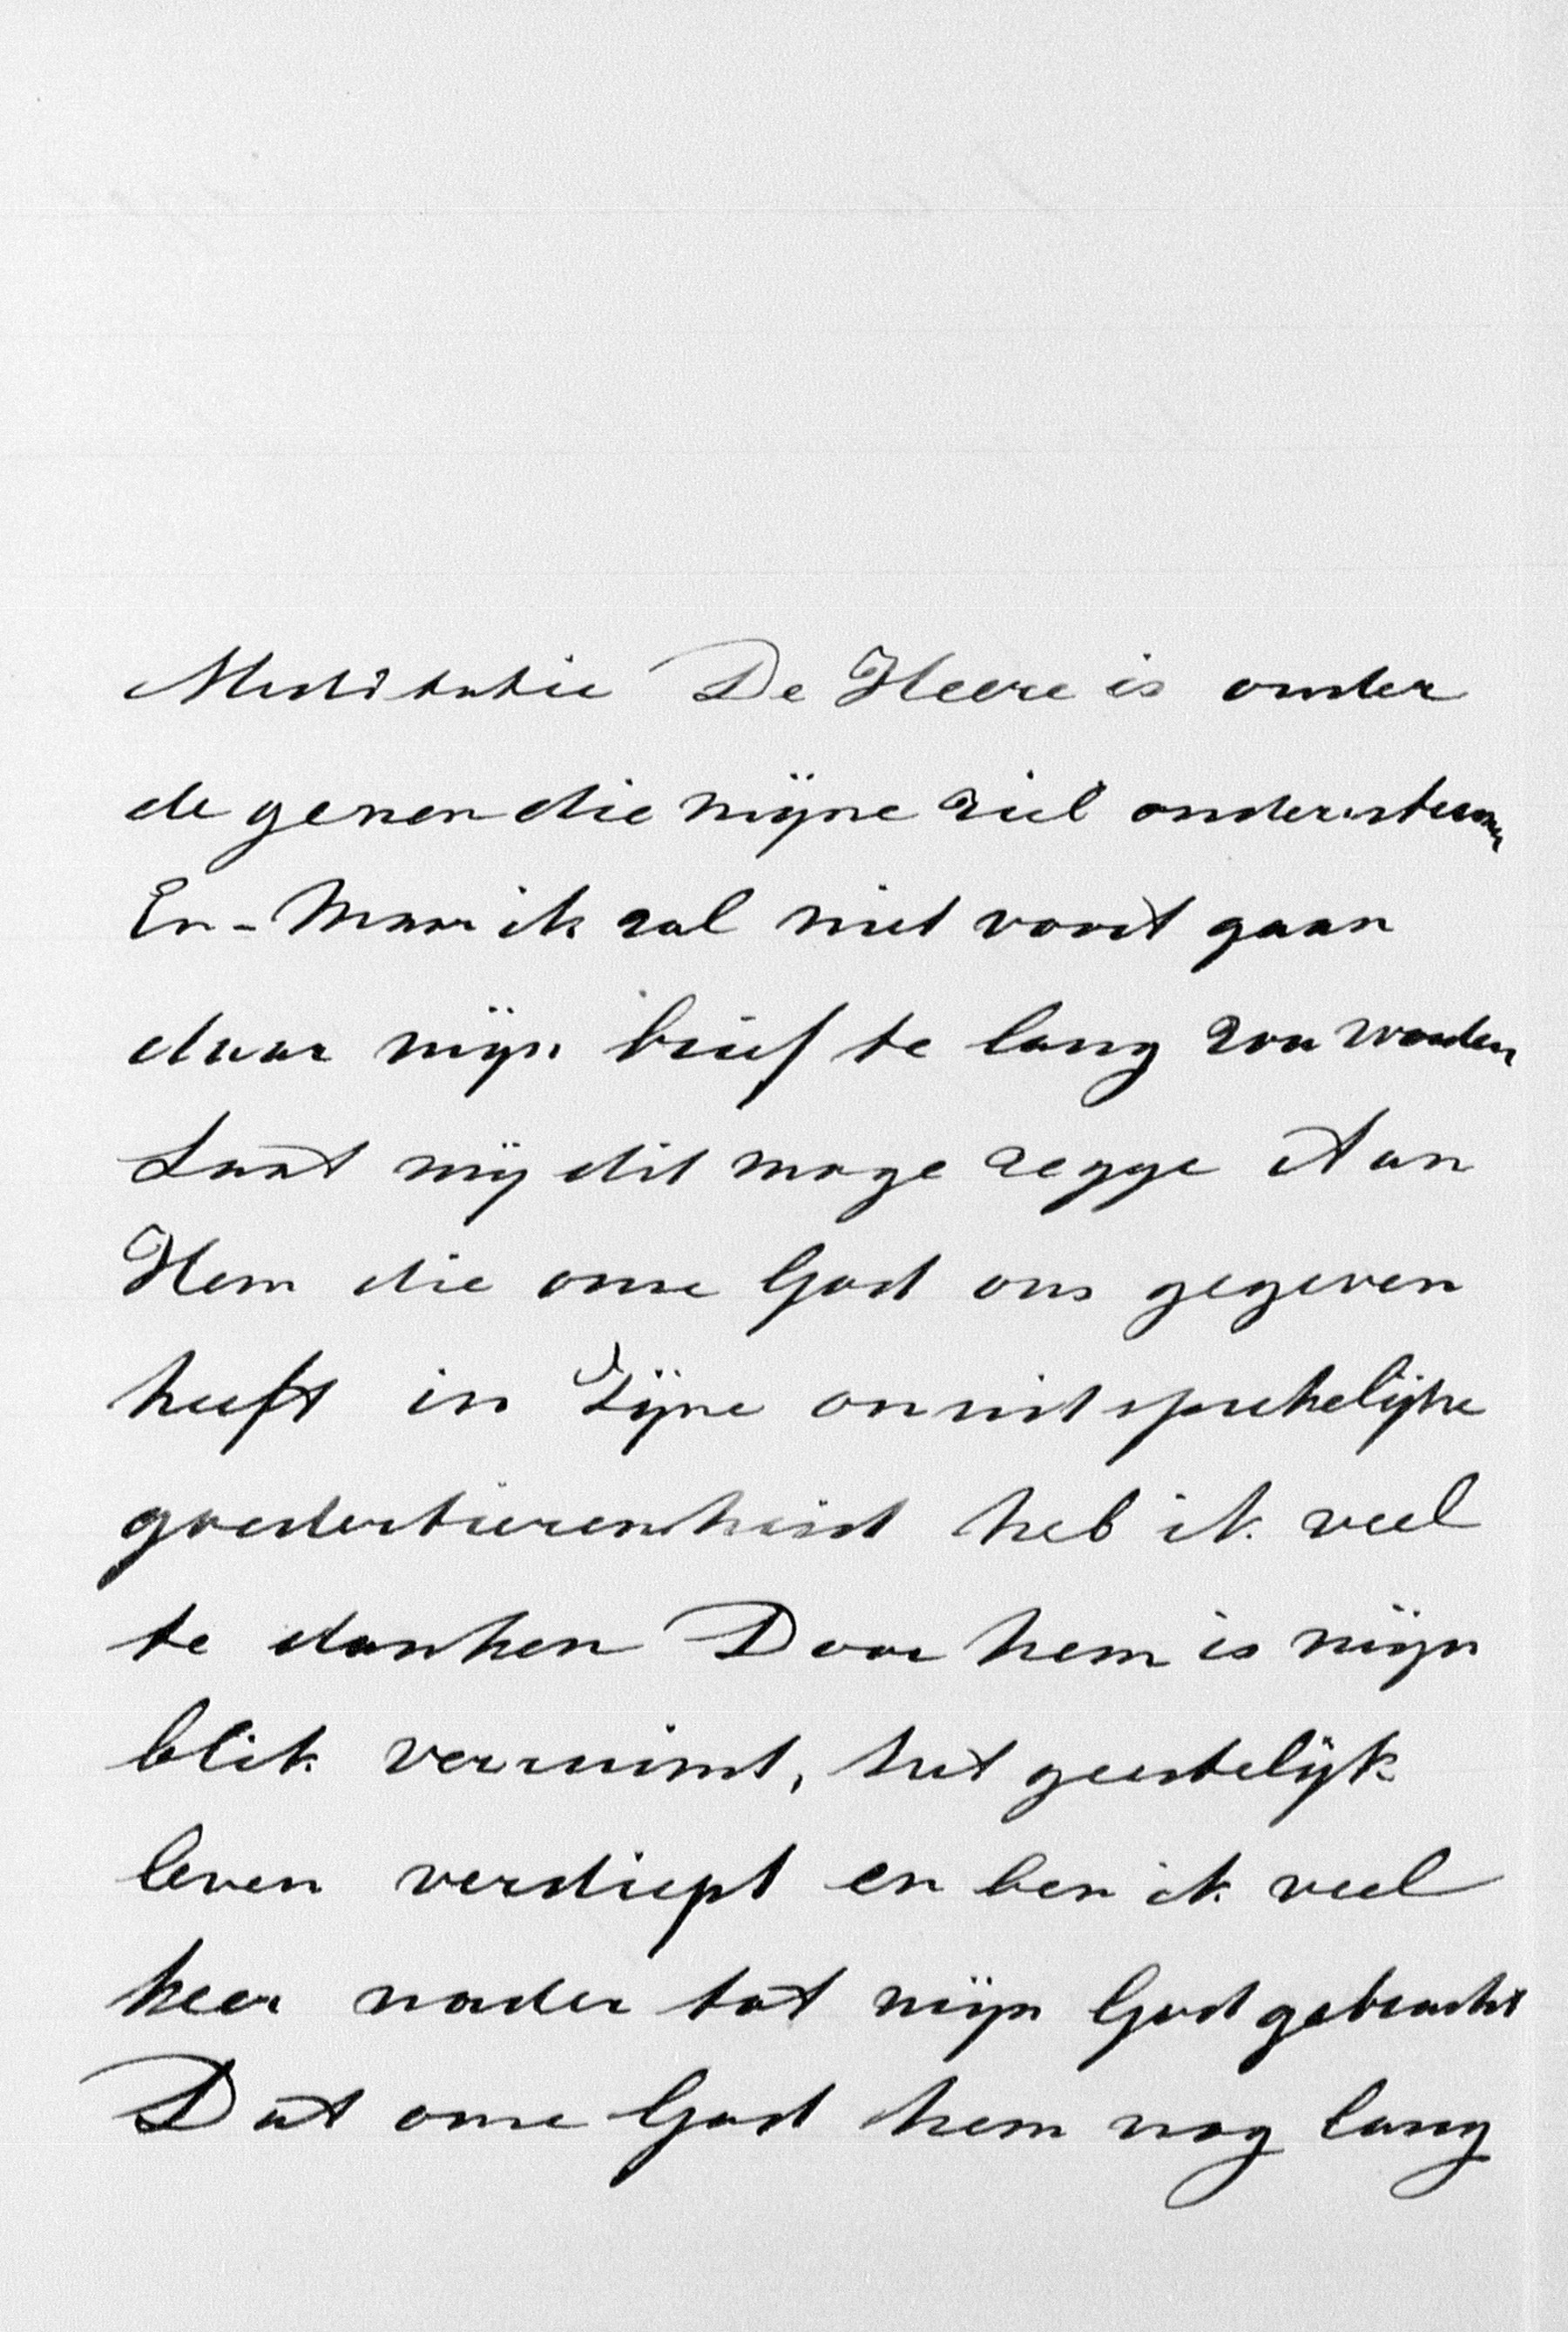 Meditatie De Heere is onder
de genen die mijne ziel ondersteunen
En - Maar ik zal niet voort gaan
daar mijn brief te lang zou worden
Laat mij dit moge zegge Aan
Hem die onse God ons gegeven
heeft in Zijne onuitsprekelijke
goedertierenheid heb ik veel
te danken Door hem is mijn
blik verruimt, het geestelijk
leven verdiept en ben ik veel
keer nader tot mijn God gebracht
Dat onse God hem nog lang